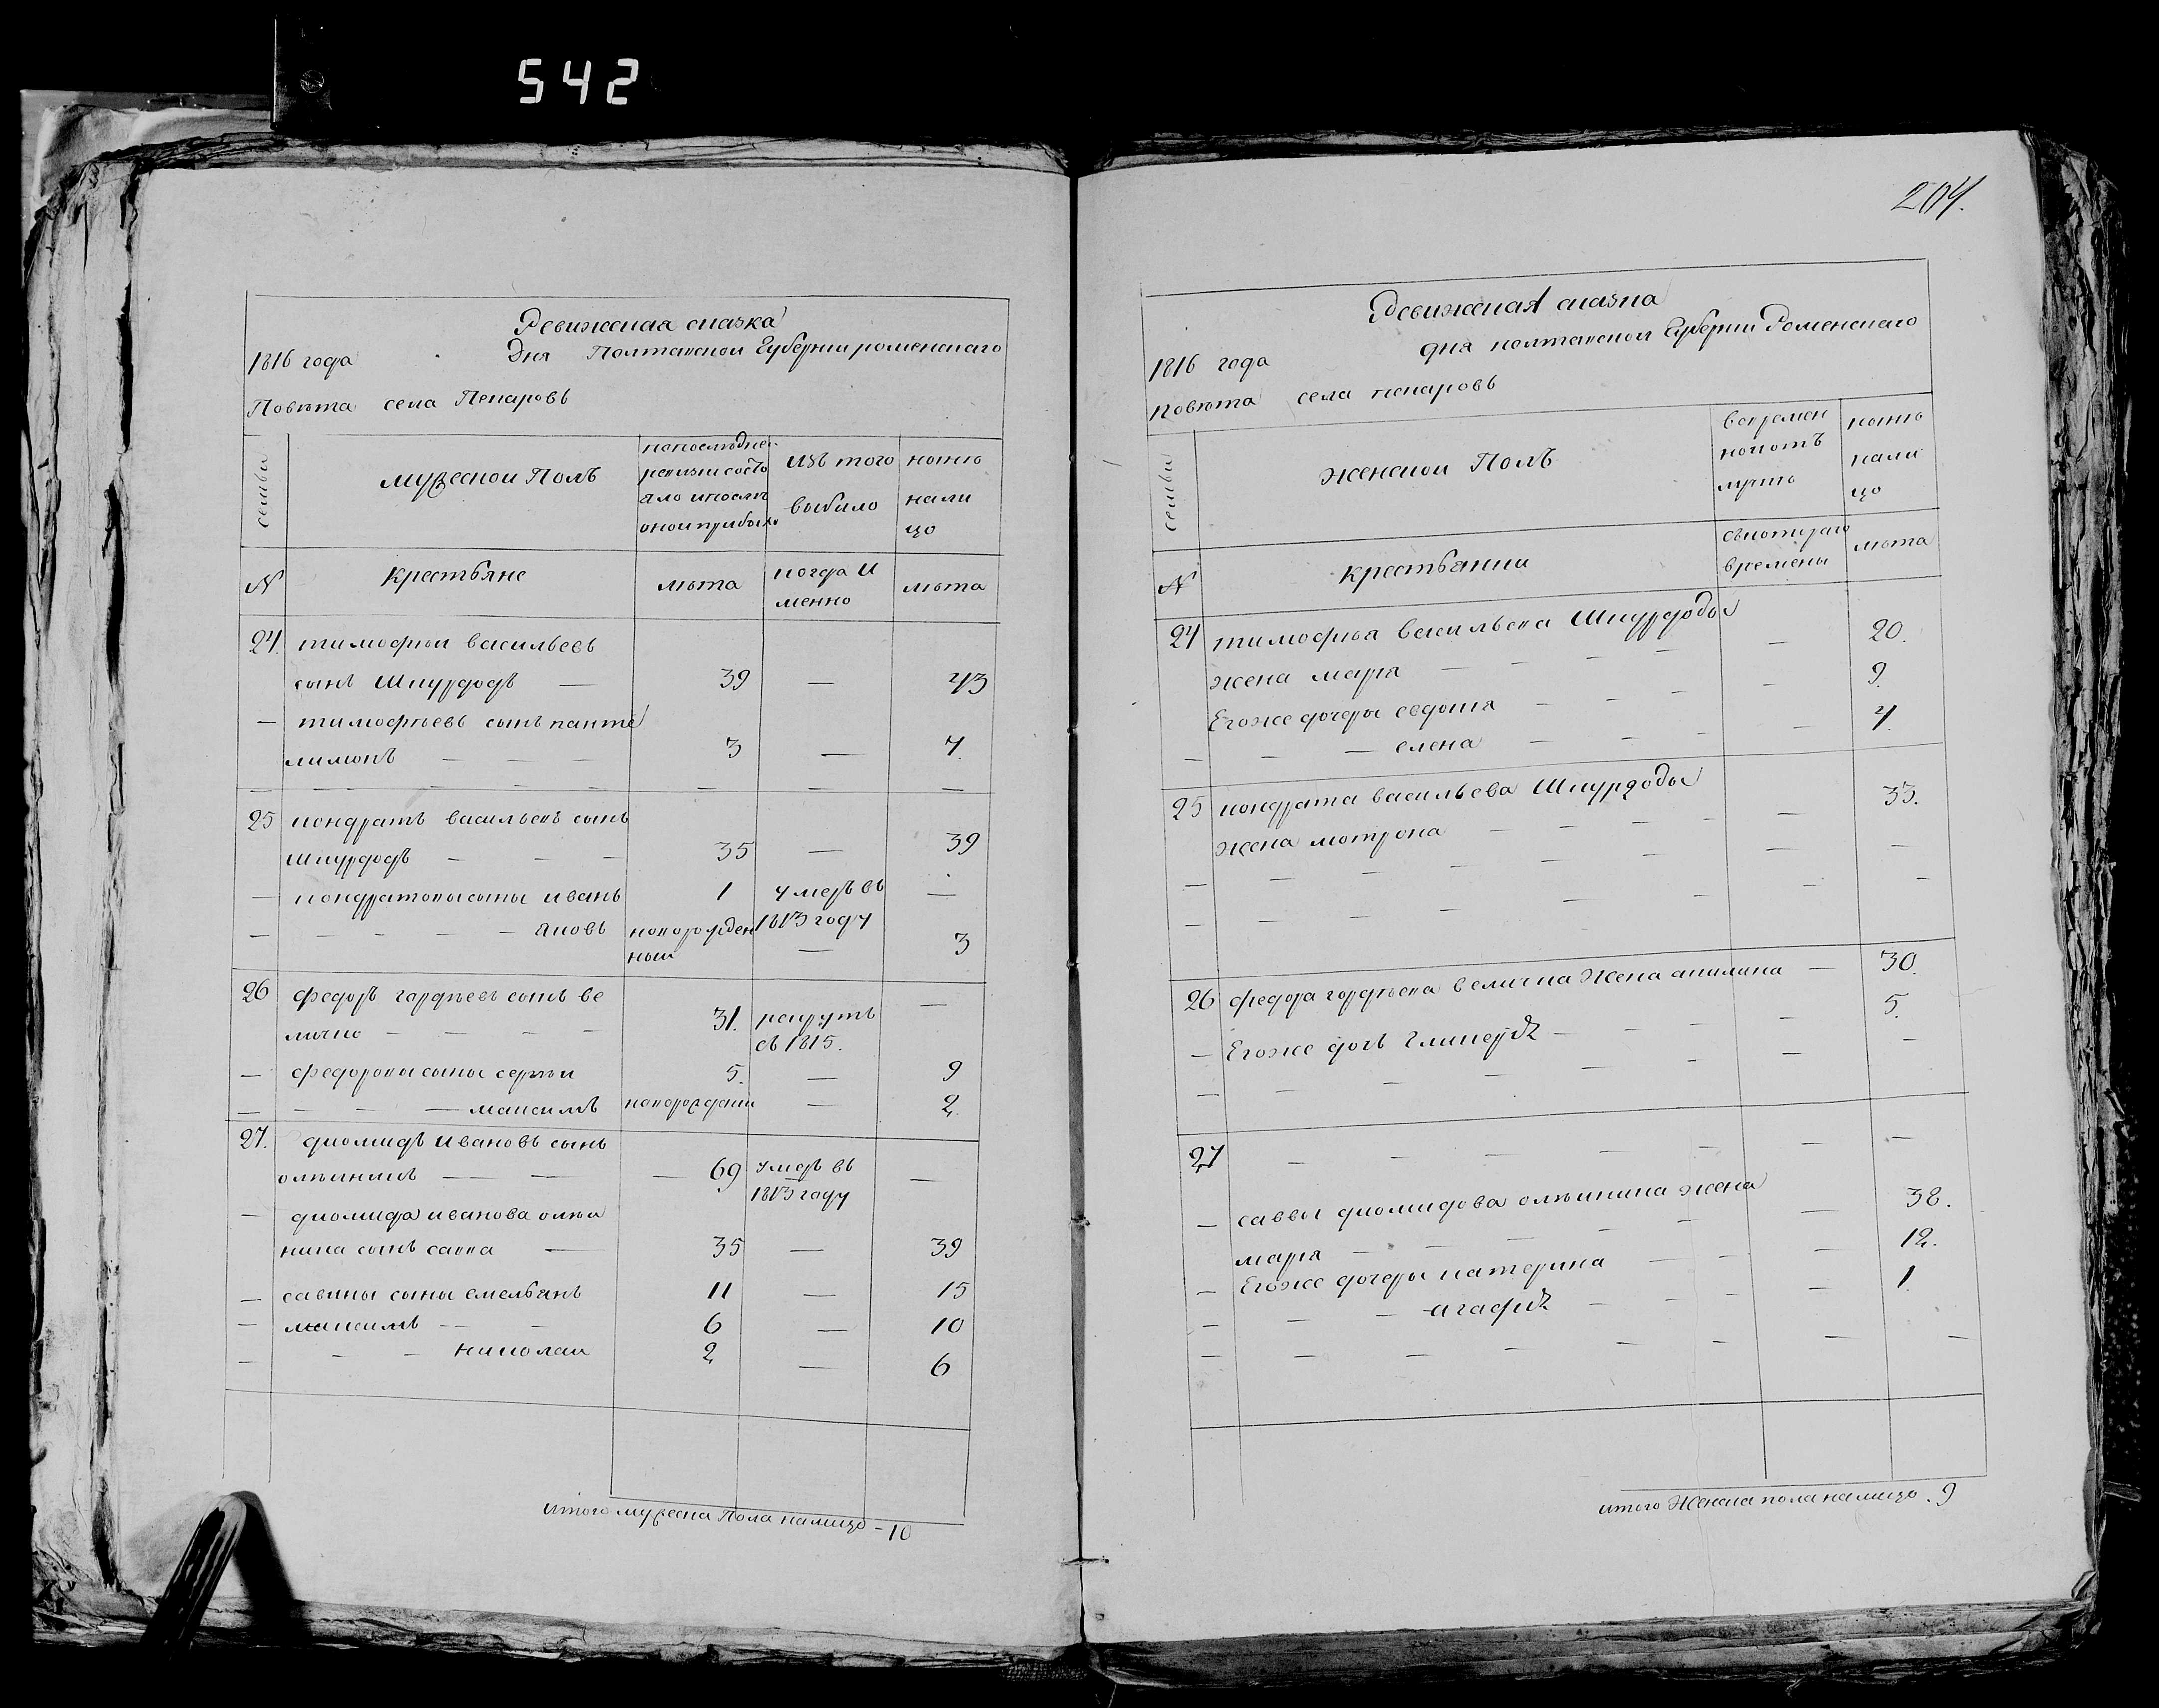 542
Ревижская сказка
1816 года Дня Полтавской Губернии роменскаго
Повѣта села Пекаровъ
семьи
мужеской Полъ
попоследне
ревизи состо
яло ипосля
оной прибыло
изъ того
выбило
ныне
нали
цо
№
Крестьяне
лѣта
когда и
менно
лѣта
24. тимофѣй васильевъ
сынъ Шкурдодъ — 39 — 43
— тимофѣевъ сынъ панте
лимонъ — — — 3 — 7.
25 кондратъ васильевъ сынъ
шкурдодъ — — — 35 — 39
— кондратовы сыны иванъ 1 умеръ въ —
— — — — — яковъ новорожден 1813 году
ный — 3
26 федоръ гордѣевъ сынъ ве
личко — — — — 31. рекрутъ —
въ 1815.
— федоровы сыны сергѣй 5. — 9
— — — — максимъ новорожденн — 2.
27. диомидъ ивановъ сынъ
олѣйникъ — — — 69 умеръ въ —
1813 году
— диомида иванова олѣй
ника сынъ савка — 35 — 39
— савины сыны емельянъ 11 — 15
— максимъ — — 6 — 10
— — — николай 2 — 6
итого мужеска Пола налицо - 10
204.
Ревижская сказка
1816 года дня полтавской Губернии Роменскаго
повѣта села пекаровъ
семьи
женской Полъ
вовремен
ной отъ
лучкѣ
ныне
нали
цо
№
крестьянки
съкотораго
времены
лѣта
24 тимофѣя васильева Шкурдоды
жена маря — — — — — 20.
Егоже дочеры евдокия — — — 9.
— — — елена — — — — 4.
25 кондрата васильева Шкурдоды
жена мотрона — — — — — 33.
26 федора гордѣева величка Жена акилина — 30.
— Егоже дочь Гликерія — — — — 5.
27 — — — — — — —
— саввы диомидова олѣйника жена
маря — — — — — 38.
— Егоже дочеры катерина — — — 12.
— — — агафия — — — — 1.
итого Женска пола налицо . 9